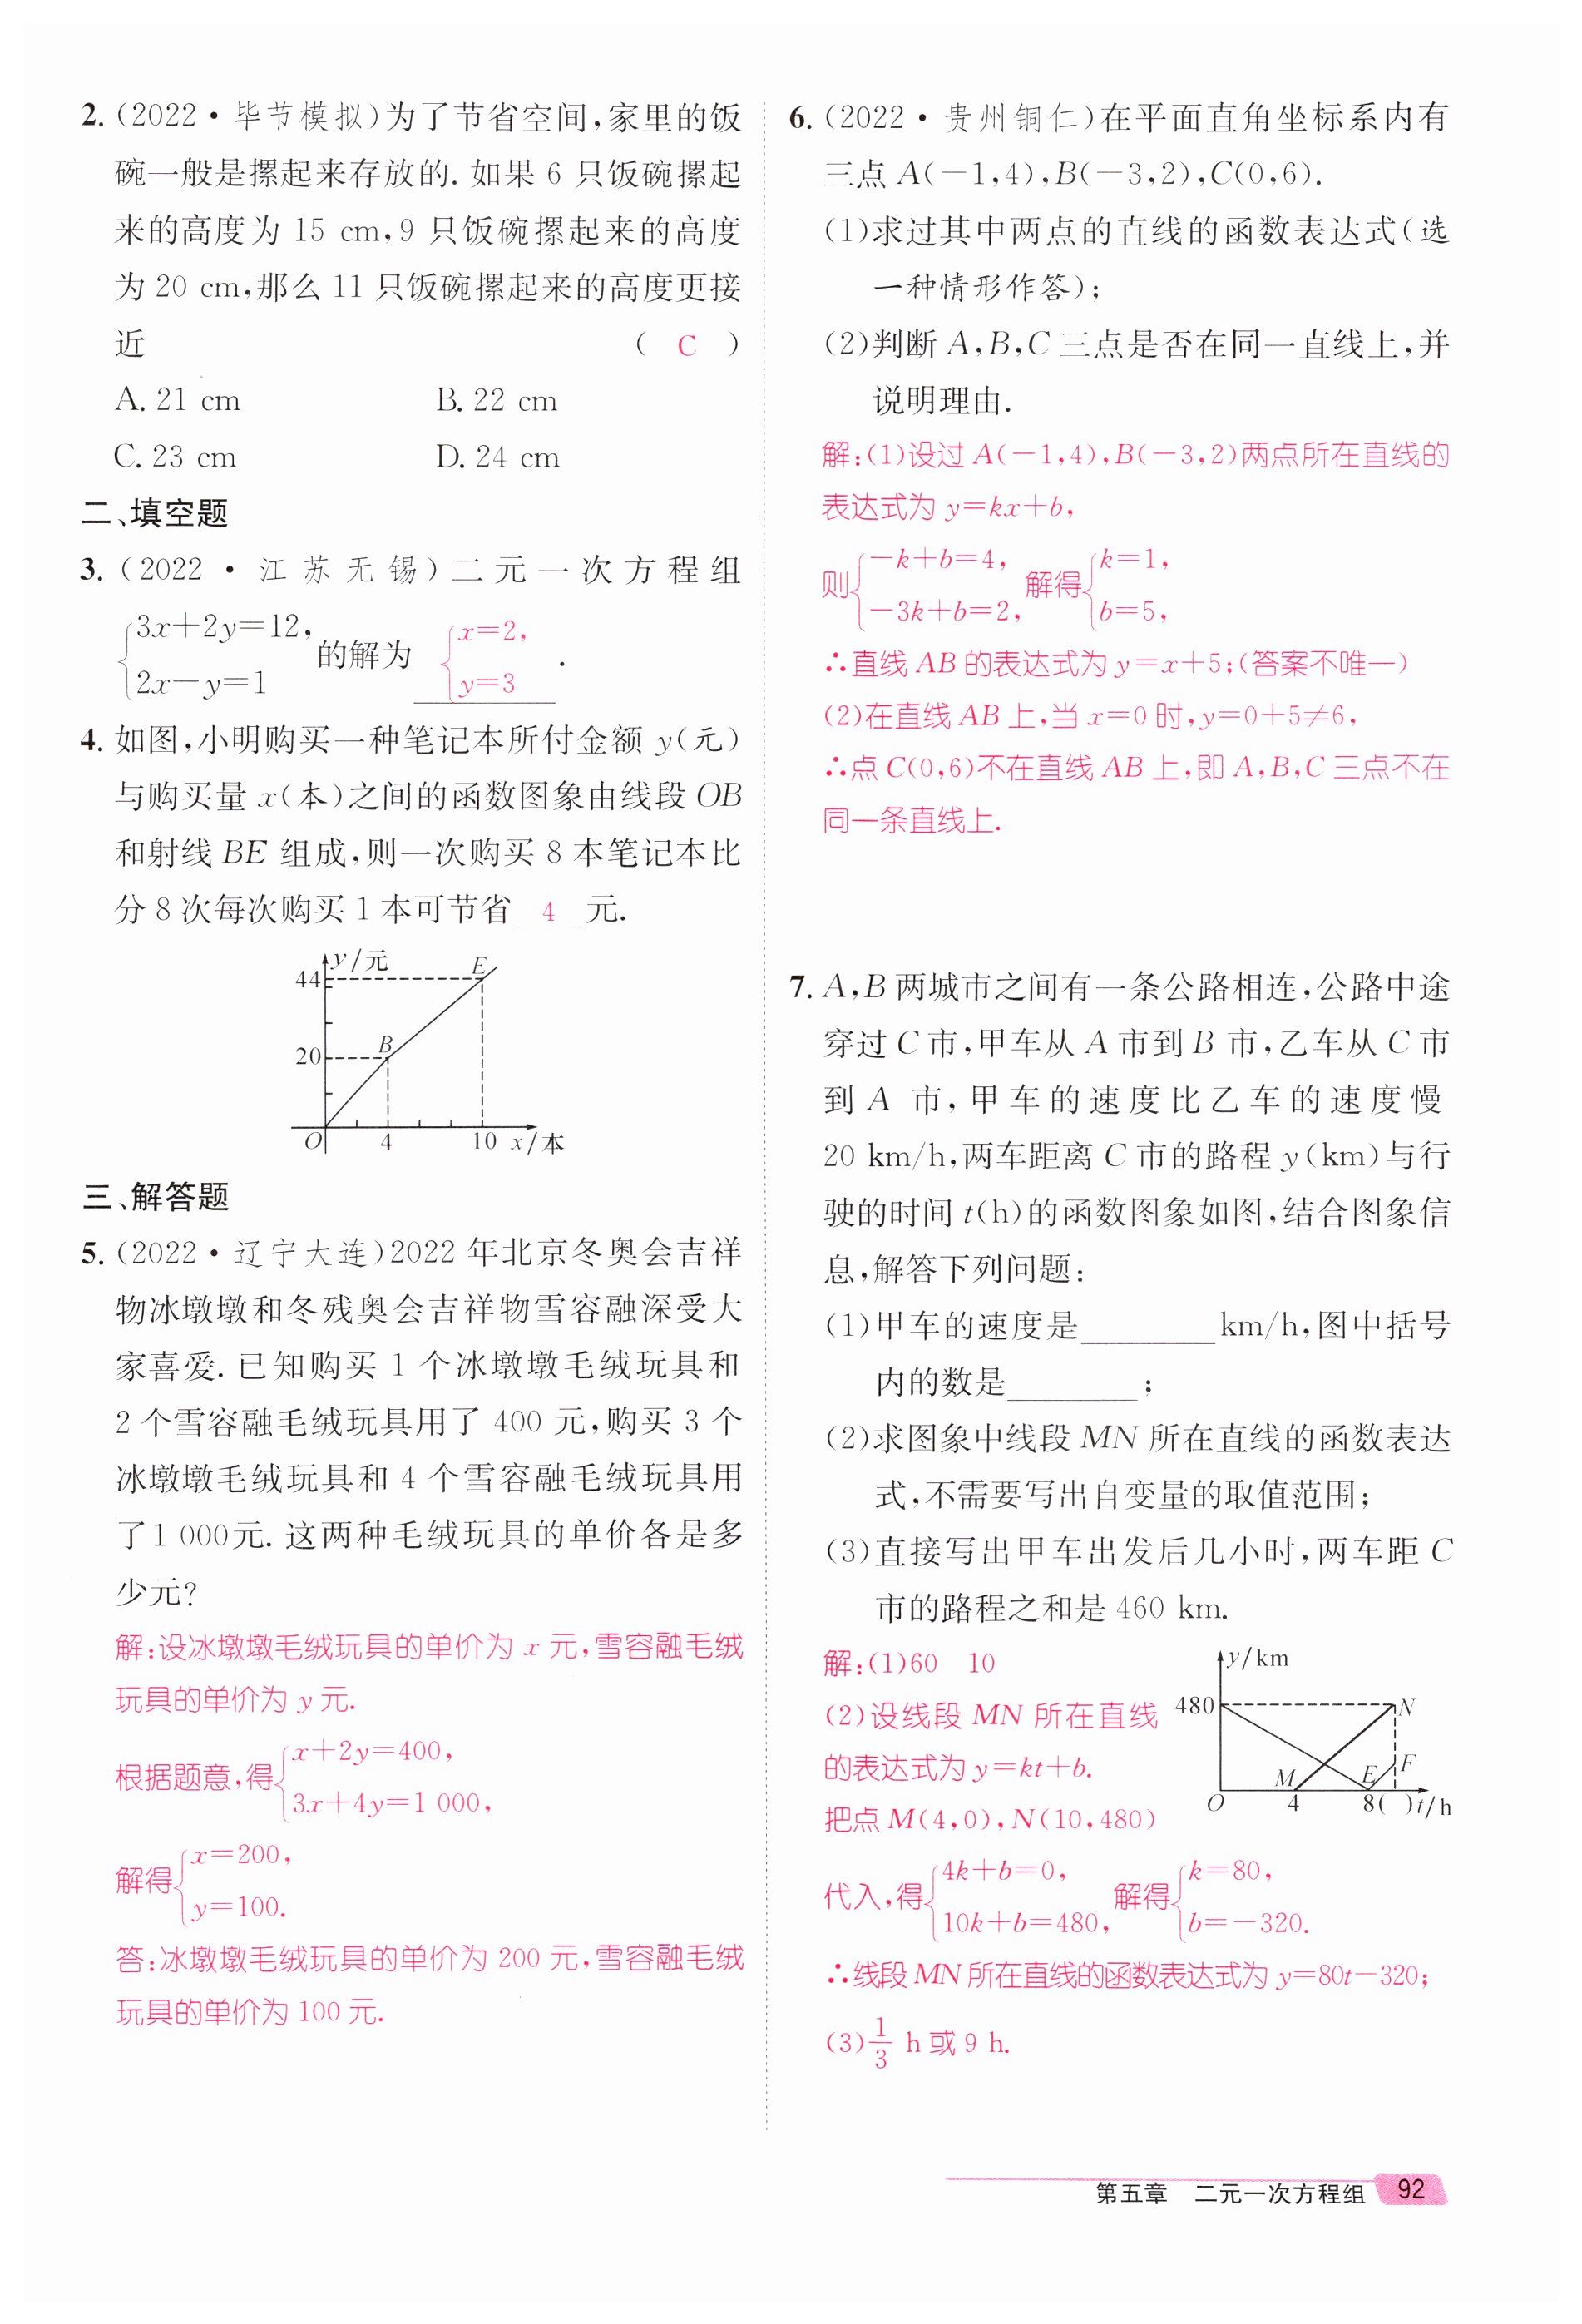 2. (2022·毕节模拟)为了节省空间,家里的饭
碗一般是摞起来存放的. 如果 6 只饭碗摞起
来的高度为 15 cm,9 只饭碗摞起来的高度
为 20 cm,那么 11 只饭碗摞起来的高度更接
近 ( C )
A. 21 cm B. 22 cm
C. 23 cm D. 24 cm
二、填空题
3. (2022·江苏无锡)二元一次方程组
{3x+2y=12,
2x-y=1 的解为 {x=2,
y=3 .
4. 如图,小明购买一种笔记本所付金额 y(元)
与购买量 x(本)之间的函数图象由线段 OB
和射线 BE 组成,则一次购买 8 本笔记本比
分 8 次每次购买 1 本可节省 4 元.
y/元
44
E
20
B
O 4 10 x/本
三、解答题
5. (2022·辽宁大连)2022 年北京冬奥会吉祥
物冰墩墩和冬残奥会吉祥物雪容融深受大
家喜爱. 已知购买 1 个冰墩墩毛绒玩具和
2 个雪容融毛绒玩具用了 400 元,购买 3 个
冰墩墩毛绒玩具和 4 个雪容融毛绒玩具用
了1 000元. 这两种毛绒玩具的单价各是多
少元?
解:设冰墩墩毛绒玩具的单价为 x 元,雪容融毛绒
玩具的单价为 y 元.
根据题意,得{x+2y=400,
3x+4y=1 000,
解得{x=200,
y=100.
答:冰墩墩毛绒玩具的单价为 200 元,雪容融毛绒
玩具的单价为 100 元.
6. (2022·贵州铜仁)在平面直角坐标系内有
三点 A(-1,4),B(-3,2),C(0,6).
(1)求过其中两点的直线的函数表达式(选
一种情形作答);
(2)判断 A,B,C 三点是否在同一直线上,并
说明理由.
解:(1)设过 A(-1,4),B(-3,2)两点所在直线的
表达式为 y=kx+b,
则{-k+b=4,
-3k+b=2, 解得{k=1,
b=5,
∴直线 AB 的表达式为 y=x+5;(答案不唯一)
(2)在直线 AB 上,当 x=0 时,y=0+5≠6,
∴点 C(0,6)不在直线 AB 上,即 A,B,C 三点不在
同一条直线上.
7. A,B 两城市之间有一条公路相连,公路中途
穿过 C 市,甲车从 A 市到 B 市,乙车从 C 市
到 A 市,甲车的速度比乙车的速度慢
20 km/h,两车距离 C 市的路程 y(km)与行
驶的时间 t(h)的函数图象如图,结合图象信
息,解答下列问题:
(1)甲车的速度是________km/h,图中括号
内的数是________;
(2)求图象中线段 MN 所在直线的函数表达
式,不需要写出自变量的取值范围;
(3)直接写出甲车出发后几小时,两车距 C
市的路程之和是 460 km.
解:(1)60 10
(2)设线段 MN 所在直线
的表达式为 y=kt+b.
把点 M(4,0),N(10,480)
y/km
480
N
M E F
O 4 8( ) t/h
代入,得{4k+b=0,
10k+b=480, 解得{k=80,
b=-320.
∴线段 MN 所在直线的函数表达式为 y=80t-320;
(3)1/3 h 或 9 h.
第五章 二元一次方程组 92